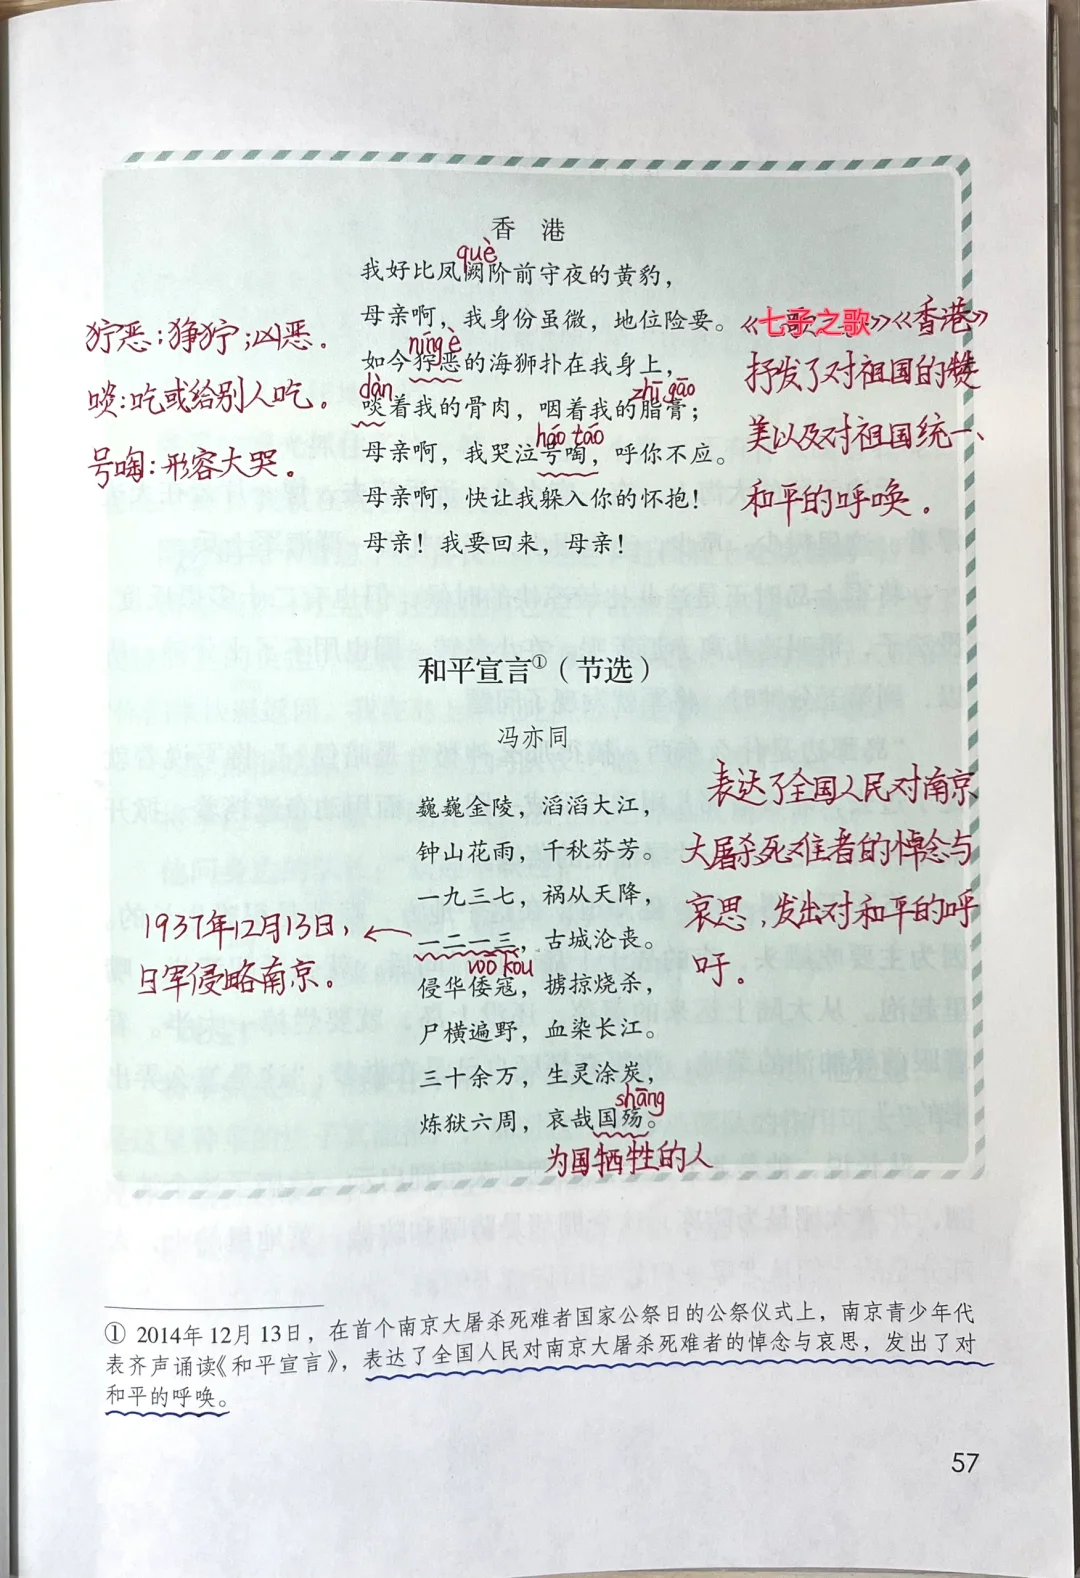 香 港
què
我好比凤阙阶前守夜的黄豹，
母亲啊，我身份虽微，地位险要。
níng è
如今狞恶的海狮扑在我身上，
dàn
zhī gāo
啖着我的骨肉，咽着我的脂膏；
háo táo
母亲啊，我哭泣号啕，呼你不应。
母亲啊，快让我躲入你的怀抱！
母亲！我要回来，母亲！
狞恶：狰狞；凶恶。
啖：吃或给别人吃。
号啕：形容大哭。
《七子之歌》《香港》
抒发了对祖国的赞
美以及对祖国统一、
和平的呼唤。
和平宣言①（节选）
冯亦同
巍巍金陵，滔滔大江，
钟山花雨，千秋芬芳。
一九三七，祸从天降，
一二一三，古城沦丧。
wō kòu
侵华倭寇，掳掠烧杀，
尸横遍野，血染长江。
三十余万，生灵涂炭，
shāng
炼狱六周，哀哉国殇。
为国牺牲的人
1937年12月13日，
日军侵略南京。
表达了全国人民对南京
大屠杀死难者的悼念与
哀思，发出对和平的呼
吁。
① 2014年12月13日，在首个南京大屠杀死难者国家公祭日的公祭仪式上，南京青少年代
表齐声诵读《和平宣言》，表达了全国人民对南京大屠杀死难者的悼念与哀思，发出了对
和平的呼唤。
57